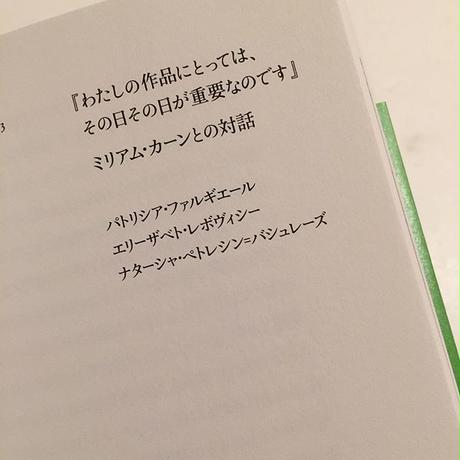 『わたしの作品にとっては、
その日その日が重要なのです』
ミリアム・カーンとの対話
3
パトリシア・ファルギエール
エリーザベト・レボヴィシー
ナターシャ・ペトレシン=バシュレーズ